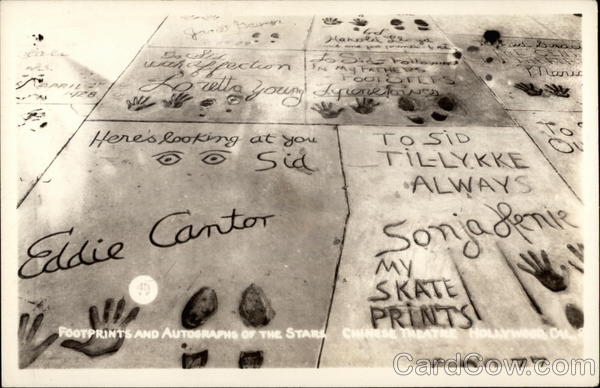 Janet Gaynor
Harold Lloyd
Sid
with affection
Loretta Young
To Sid Following
in my Fathers
Footsteps
Tyrone Power
Here's looking at you
Sid
Eddie Cantor
To Sid
Til-Lykke
Always
Sonja Henie
My
Skate
Prints
Footprints and Autographs of the Stars Chinese Theatre Hollywood, Cal.
CardCow.com